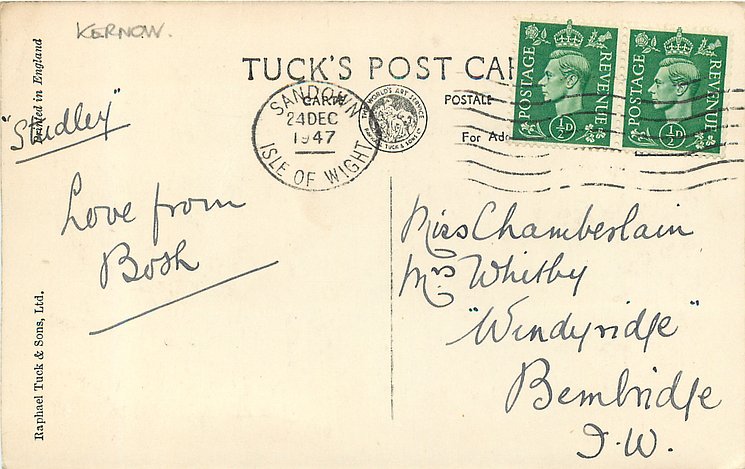 KERNOW.
TUCK'S POST CAR
CARTE POSTALE
For Add
SANDOWN
24 DEC
1947
ISLE OF WIGHT
THE WORLD'S ART SERVICE
RAPHAEL TUCK & SONS LTD
POSTAGE REVENUE
½D
POSTAGE REVENUE
½D
Printed in England
"Studley"
Love from
Bosh
Raphael Tuck & Sons, Ltd.
Miss Chamberlain
Mrs Whitby
"Windyridge"
Bembridge
I.W.